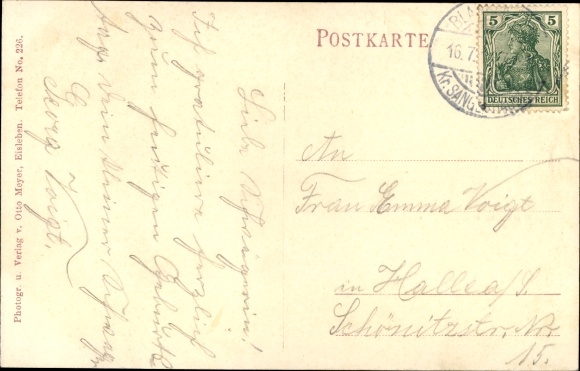 Photogr. u. Verlag v. Otto Meyer, Eisleben. Telefon No. 226.
Liebe Schwägerin!
Ich gratuliere herzlich
zum heutigen Geburts
tage. Dein kleiner Schwager
Georg Voigt.
POSTKARTE
16.7.
Kr. SANGERH
5 5
DEUTSCHES REICH
An
Frau Emma Voigt
in Halle a/S.
Schönitzstr. Nr
15.